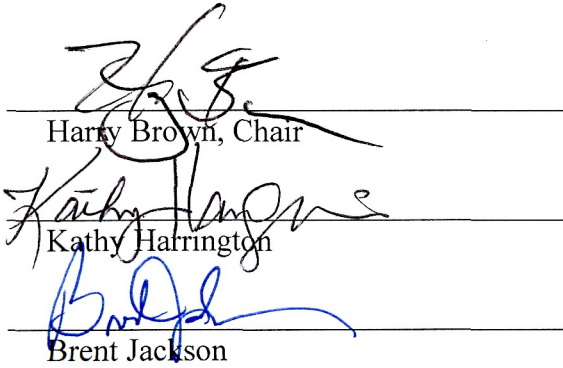 Harry Brown, Chair
Kathy Harrington
Kathy Harrington
Brent Jackson